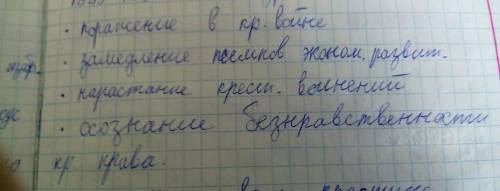 · поражение в кр. войне
· замедление темпов эконом. развит.
· нарастание крест. волнений
· осознание безнравственности
кр. права.